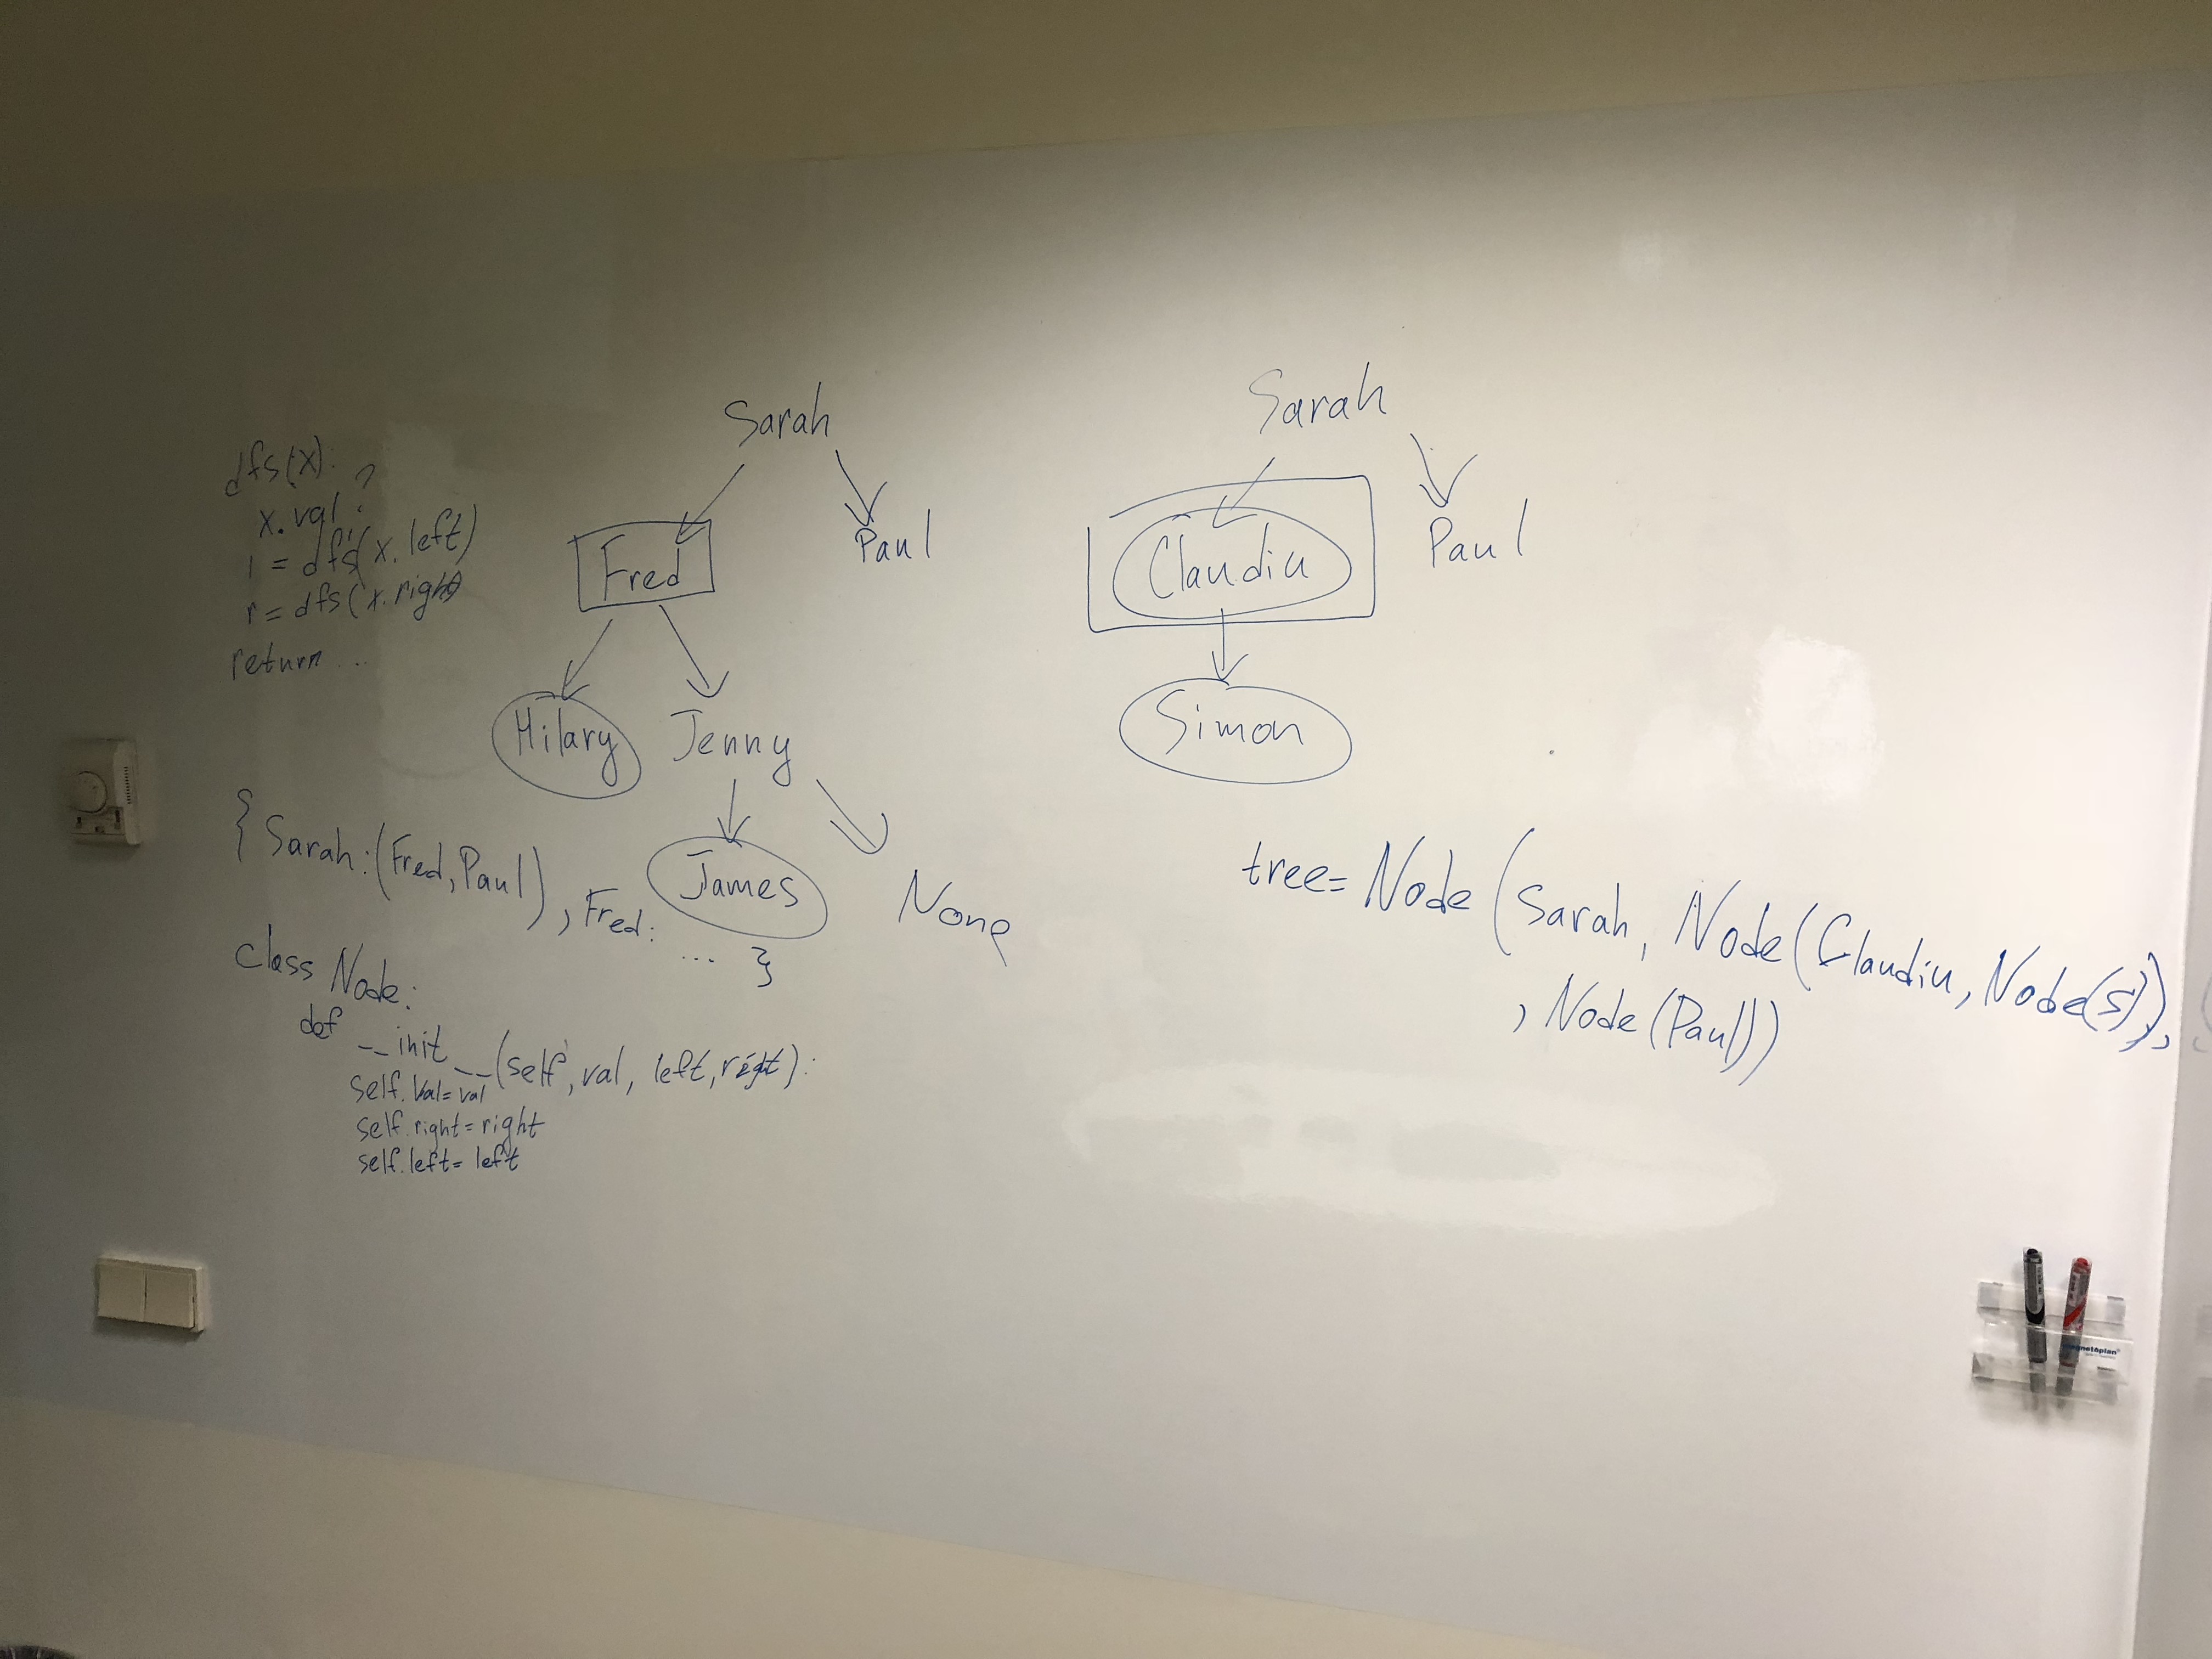 dfs(x):
x.val ?
l = dfs(x.left)
r = dfs(x.right)
return ...
Sarah
Fred
Paul
Hilary
Jenny
James
None
{ Sarah:(Fred,Paul), Fred: ... }
class Node:
def __init__(self, val, left, right):
self.val=val
self.right=right
self.left=left
Sarah
Claudiu
Paul
Simon
tree= Node(Sarah, Node(Claudiu, Node(S)),
, Node(Paul))